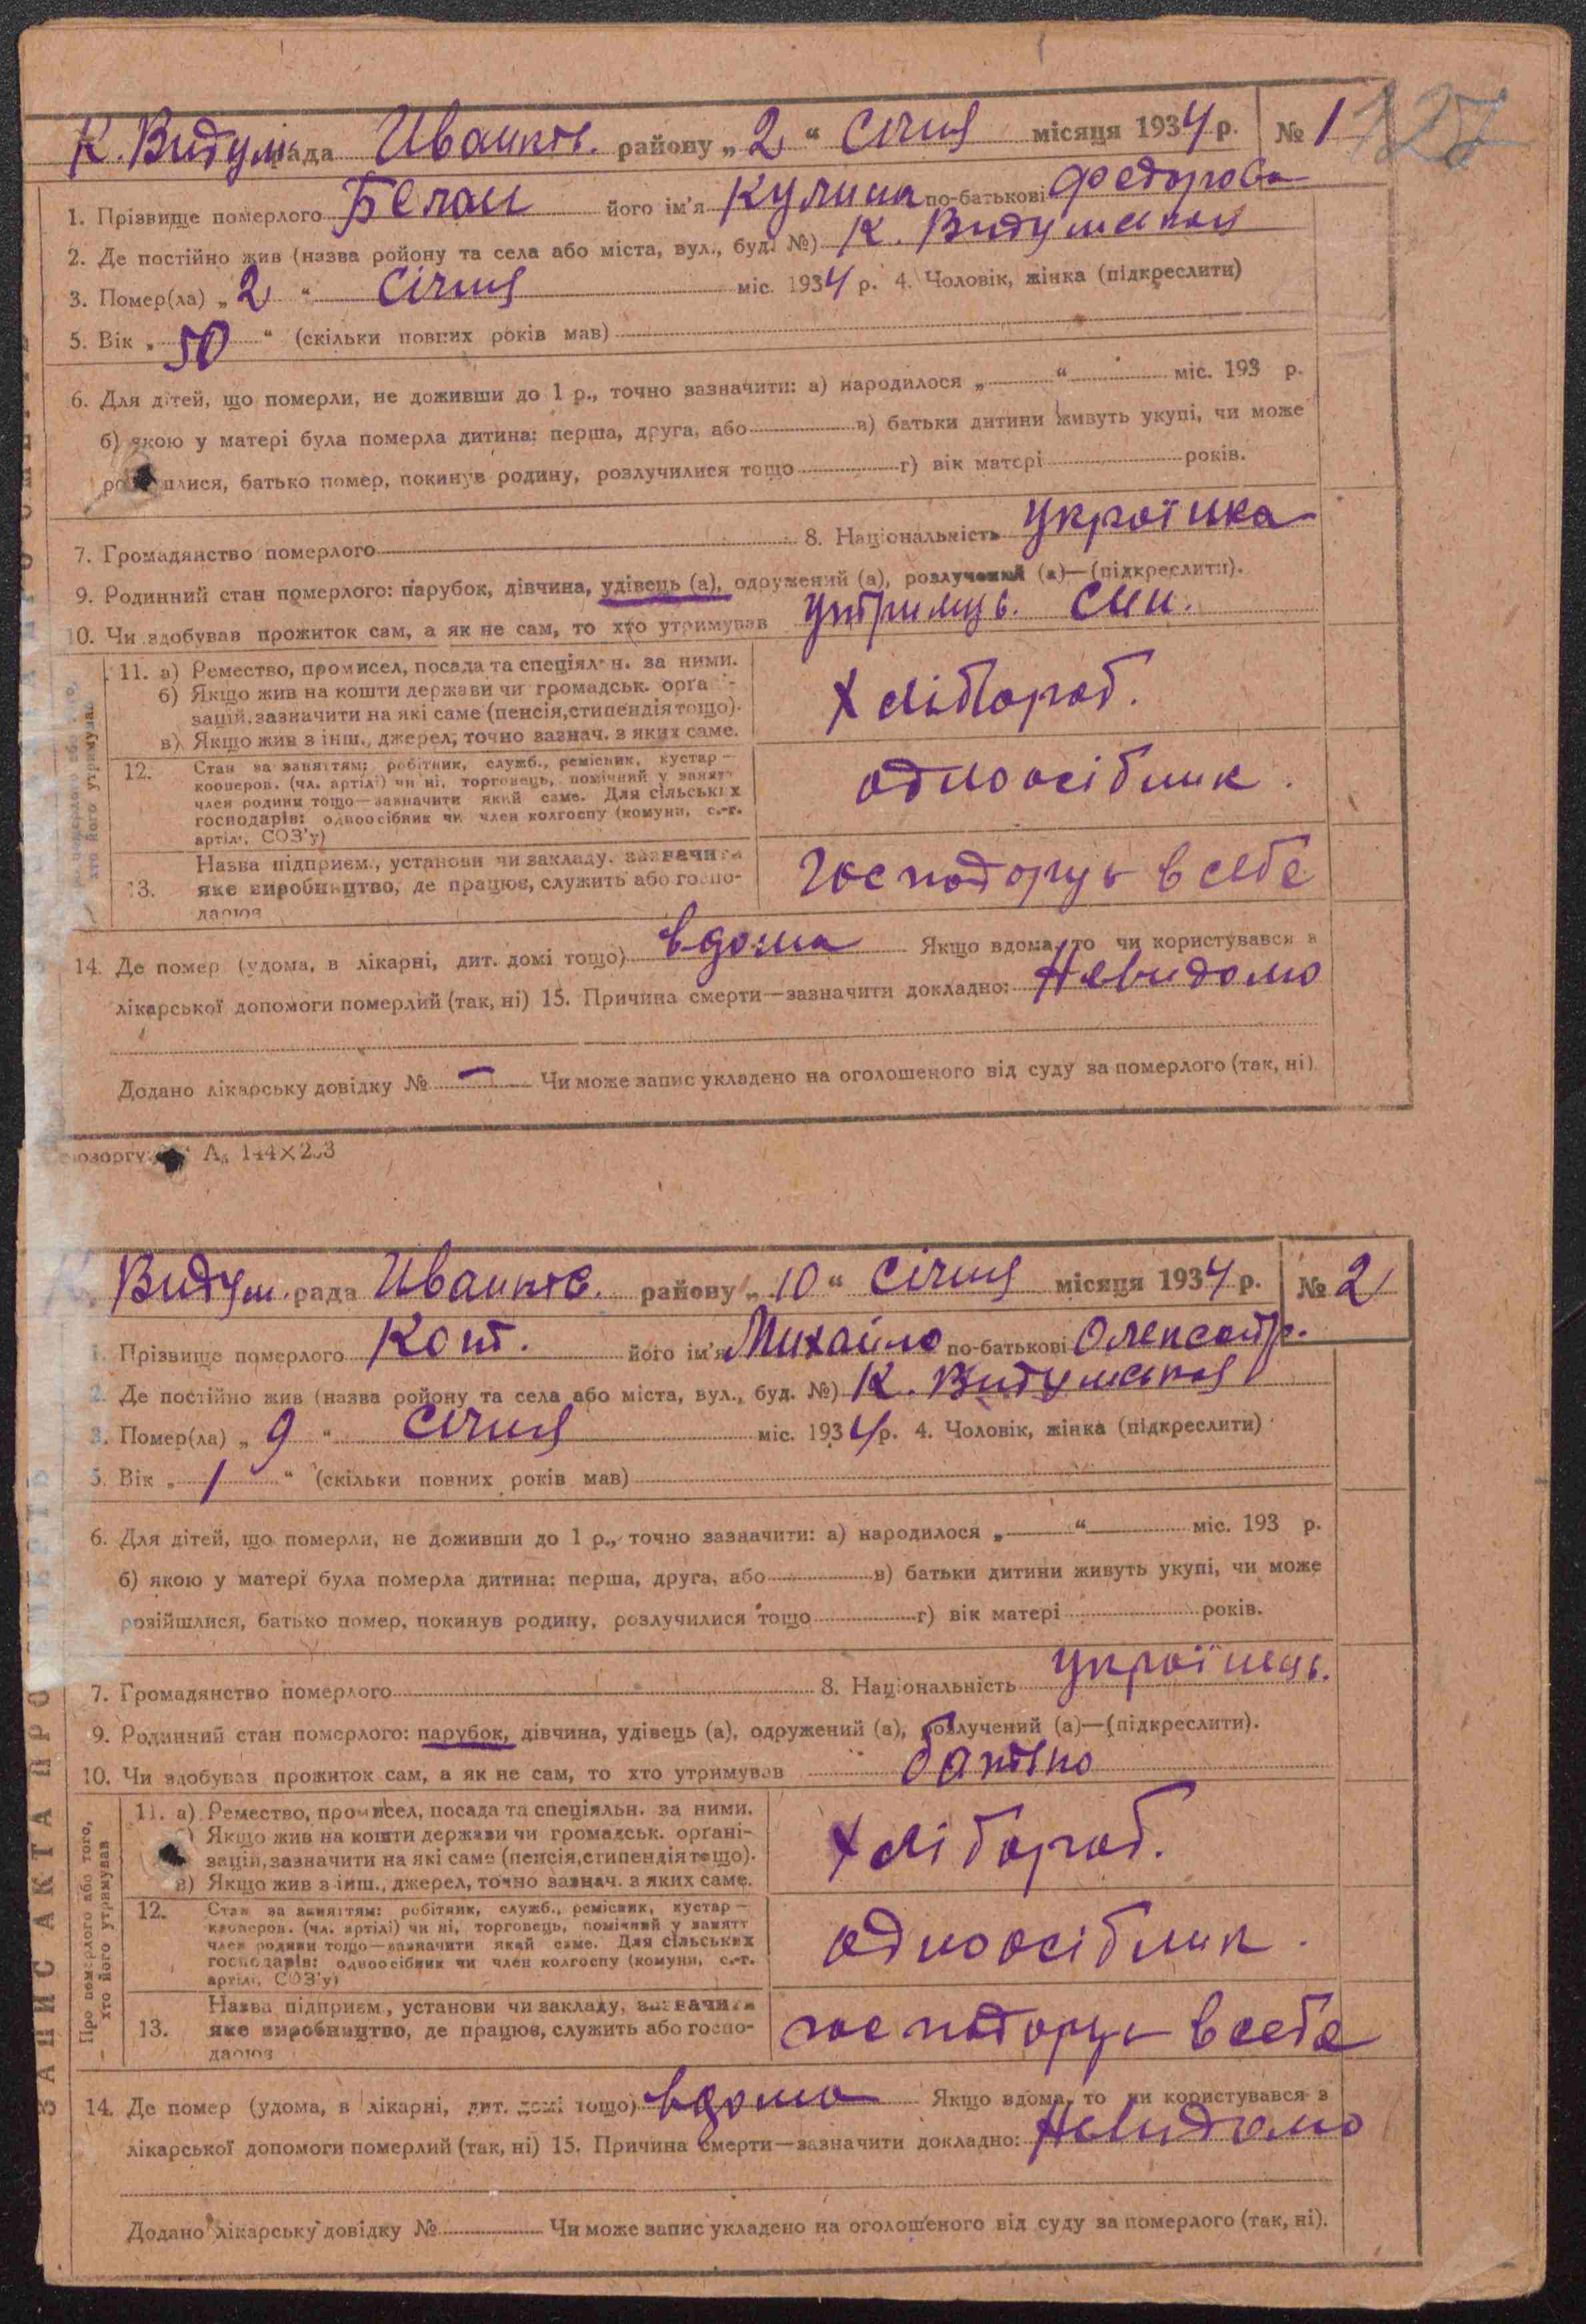 127
К. Видум. рада Иванків. району „2“ Січня місяця 1934 р. № 1
1. Прізвище померлого Белан його ім'я Кулина по-батькові Федорова
2. Де постійно жив (назва ройону та села або міста, вул., буд. №) К. Видумська
3. Помер(ла) „2“ Січня міс. 1934 р. 4. Чоловік, жінка (підкреслити)
5. Вік „50“ (скільки повних років мав)
6. Для дітей, що померли, не доживши до 1 р., точно зазначити: а) народилося „ “ міс. 193 р.
б) якою у матері була померла дитина: перша, друга, або в) батьки дитини живуть укупі, чи може
розійшлися, батько помер, покинув родину, розлучилися тощо г) вік матері років.
7. Громадянство померлого 8. Національність Украінка
9. Родинний стан померлого: парубок, дівчина, удівець (а), одружений (а), розлучений (а)—(підкреслити).
10. Чи здобував прожиток сам, а як не сам, то хто утримував утримує. син.
11. а) Ремество, промисел, посада та спеціяльн. за ними.
б) Якщо жив на кошти держави чи громадськ. орга-
зацій, зазначити на які саме (пенсія, стипендія тощо).
в) Якщо жив з інш., джерел, точно зазнач. з яких саме.
Хлібороб.
12. Стан за заняттям: робітник, служб., ремісник, кустар—
кооперов. (чл. артілі) чи ні, торговець, помічний у занятт
член родини тощо—зазначити який саме. Для сільських
господарів: одноосібник чи член колгоспу (комуни, с.-г.
артілі, СОЗ'у)
одноосібник.
Назва підприєм., установи чи закладу, зазначити
13. яке виробництво, де працює, служить або госпо-
дарює
Господарує в себе
14. Де помер (удома, в лікарні, дит. домі тощо) вдома Якщо вдома, то чи користувався з
лікарської допомоги померлий (так, ні) 15. Причина смерти—зазначити докладно: Невидомо
Додано лікарську довідку № — Чи може запис укладено на оголошеного від суду за померлого (так, ні).
Видум. рада Иванків. району „10“ Січня місяця 1934 р. № 2
1. Прізвище померлого Кот. його ім'я Михайло по-батькові Олександр.
2. Де постійно жив (назва ройону та села або міста, вул., буд. №) К. Видумська
3. Помер(ла) „9“ Січня міс. 1934 р. 4. Чоловік, жінка (підкреслити)
5. Вік „1“ (скільки повних років мав)
6. Для дітей, що померли, не доживши до 1 р., точно зазначити: а) народилося „ “ міс. 193 р.
б) якою у матері була померла дитина: перша, друга, або в) батьки дитини живуть укупі, чи може
розійшлися, батько помер, покинув родину, розлучилися тощо г) вік матері років.
7. Громадянство померлого 8. Національність Україпець.
9. Родинний стан померлого: парубок, дівчина, удівець (а), одружений (а), розлучений (а)—(підкреслити).
10. Чи здобував прожиток сам, а як не сам, то хто утримував батько
Про померлого або того,
хто його утримував
11. а) Ремество, промисел, посада та спеціяльн. за ними.
б) Якщо жив на кошти держави чи громадськ. органі-
зацій, зазначити на які саме (пенсія, стипендія тощо).
в) Якщо жив з інш., джерел, точно зазнач. з яких саме.
Хлібороб.
12. Стан за заняттям: робітник, служб., ремісник, кустар—
кооперов. (чл. артілі) чи ні, торговець, помічний у занятт
член родини тощо—зазначити який саме. Для сільських
господарів: одноосібник чи член колгоспу (комуни, с.-г.
артілі, СОЗ'у)
одноосібник.
Назва підприєм., установи чи закладу, зазначити
13. яке виробництво, де працює, служить або госпо-
дарює
господарує в себе
14. Де помер (удома, в лікарні, дит. домі тощо) вдома Якщо вдома, то чи користувався з
лікарської допомоги померлий (так, ні) 15. Причина смерти—зазначити докладно: Невидомо
Додано лікарську довідку № Чи може запис укладено на оголошеного від суду за померлого (так, ні).